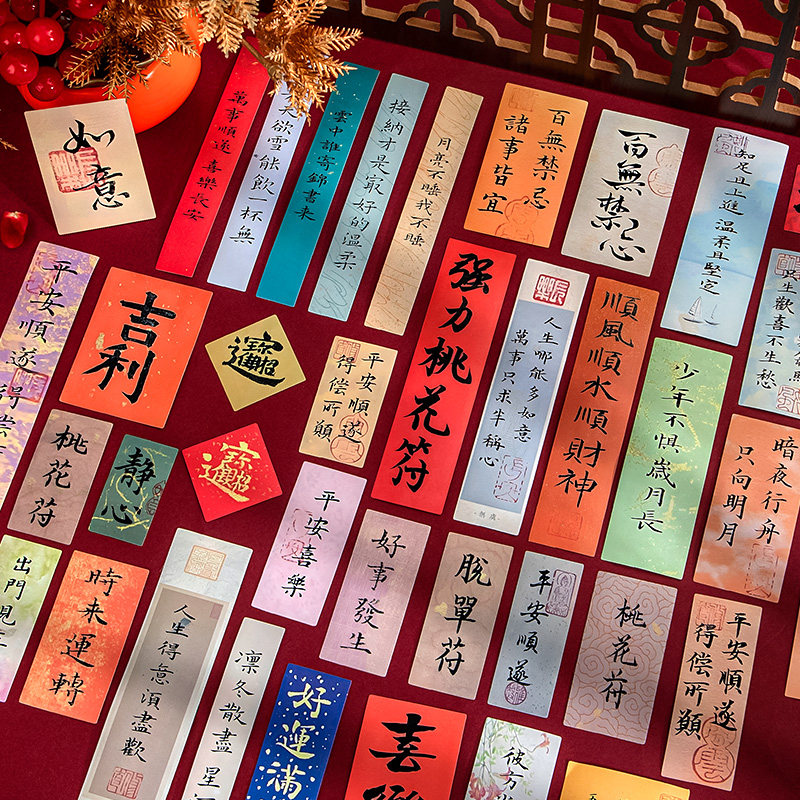 如意
萬事順遂 喜樂長安
天欲雪 能飲一杯無
雲中誰寄錦書来
接納才是最好的溫柔
月亮不睡我不睡
百無禁忌
諸事皆宜
百無禁忌
知足且上進 溫柔且堅定
只生歡喜不生愁
平安順遂 得償
吉利
招財進寶
平安順遂
得償所願
强力桃花符
人生哪能多如意
萬事只求半稱心
順風順水順財神
少年不惧歲月長
暗夜行舟
只向明月
桃花符
靜心
招財進寶
平安喜樂
好事發生
脫單符
平安順遂
桃花符
平安順遂
得償所願
出門見
時来運轉
人生得意須盡歡
凛冬散盡 星
好運滿
喜樂
彼方